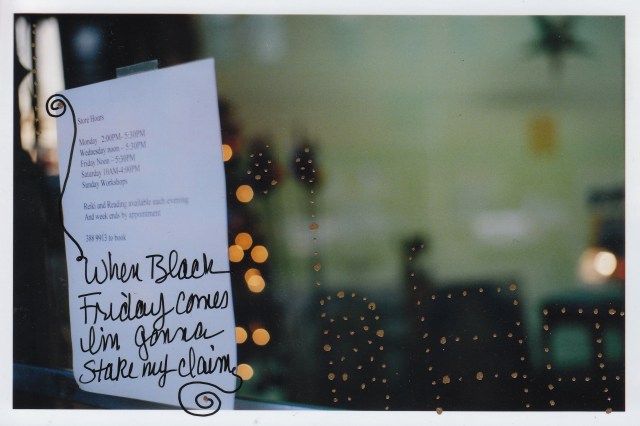 Store Hours
Monday 2:00PM- 5:30PM
Wednesday noon – 5:30PM
Friday Noon – 5:30PM
Saturday 10AM-4:00PM
Sunday Workshops
Reiki and Reading available each evening
And week ends by appointment
388 9913 to book
When Black
Friday comes
I'm gonna
Stake my claim